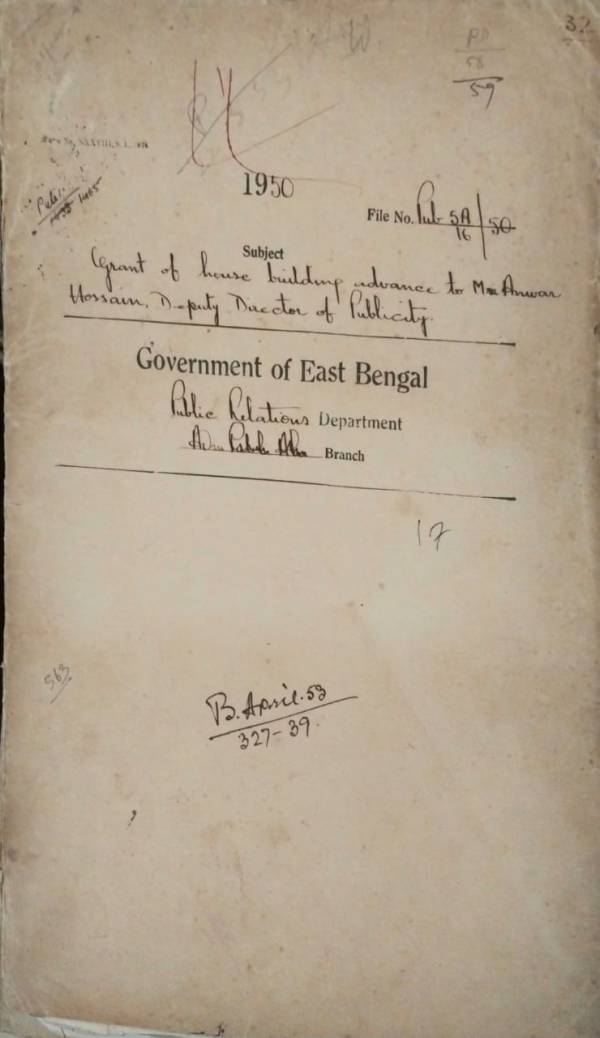 32
PD
58
59
1950
File No. Pub 5A/16/50
Subject
Grant of house building advance to Mr Anwar
Hossain, Deputy Director of Publicity.
Government of East Bengal
Public Relations Department
Branch
17
563
B. April. 53
327-39.